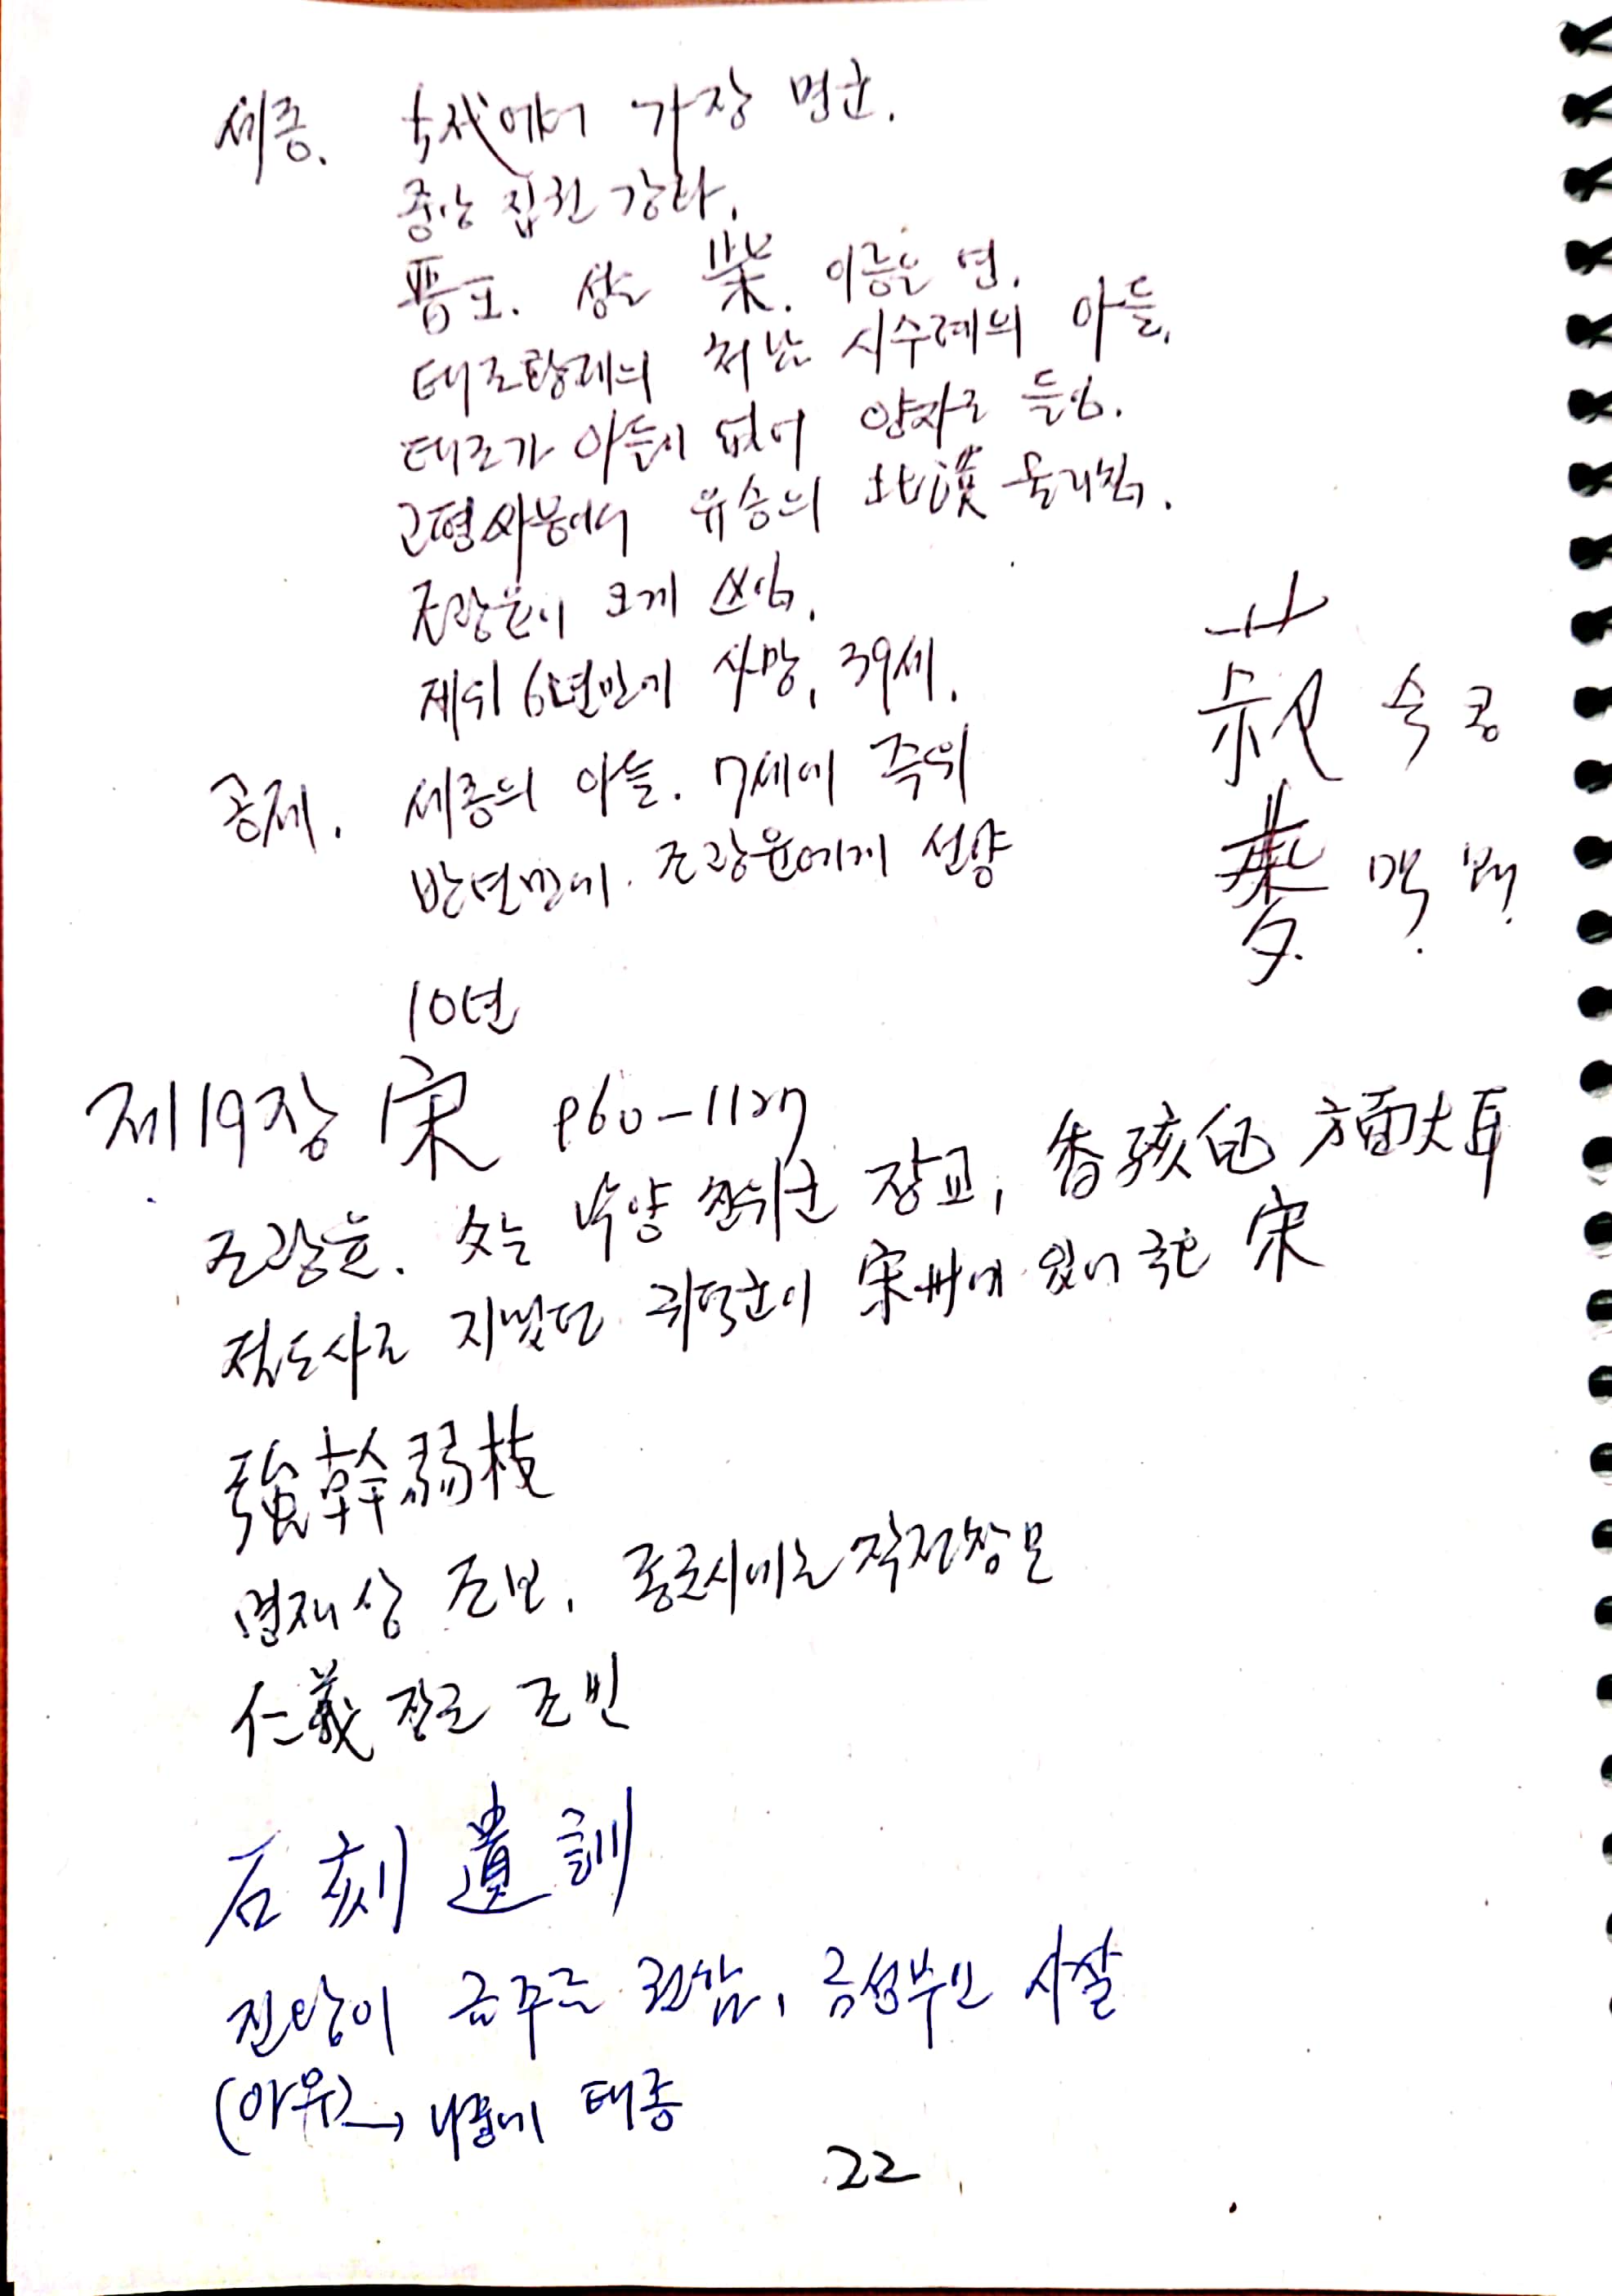 세종. 五代에서 가장 명군.
중앙 집권 강화.
晋王. 성은 柴. 이름은 영.
태조황제의 처남 시수례의 아들.
태조가 아들이 없어 양자로 들임.
고평싸움에서 유숭의 北漢 물리침.
조광윤이 크게 쓰임.
제위 6년만에 사망, 39세.
菽 숙 콩
공제. 세종의 아들. 7세에 즉위
반년만에. 조광윤에게 선양
麥 맥 맥.
10년
제19장 宋 960-1127
조광윤. 父는 낙양 친위군 장교, 香孩兒 方面大耳
절도사로 지냈던 귀덕군이 宋州에 있어 국호 宋
強幹弱枝
명재상 조보. 종군시에는 작전참모
仁義 장군 조빈
石刻遺訓
진왕이 금주를 권함, 금성부인 사살
(아우)→ 나중에 태종
22